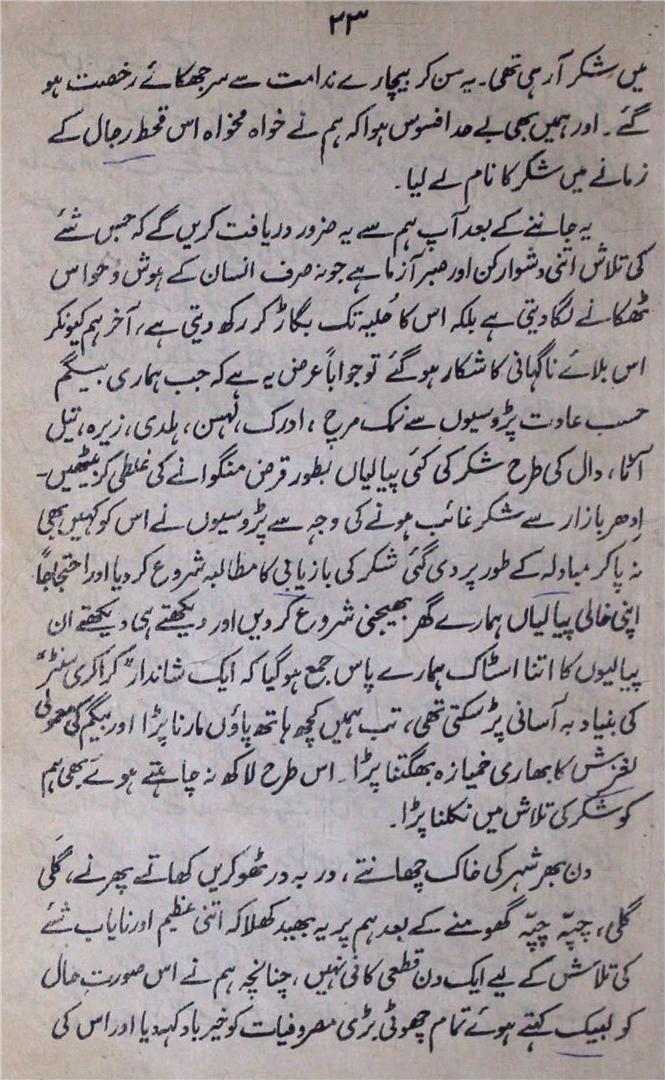 ۲۳
میں شکر آ رہی تھی۔ یہ سن کر بیچارے ندامت سے سر جھکائے رخصت ہو
گئے۔ اور ہمیں بھی بے حد افسوس ہوا کہ ہم نے خواہ مخواہ اس قحط رجال کے
زمانے میں شکر کا نام لے لیا۔
یہ جاننے کے بعد آپ ہم سے یہ ضرور دریافت کریں گے کہ جس شئے
کی تلاش اتنی دشوار کن اور صبر آزما ہے جو نہ صرف انسان کے ہوش و حواس
ٹھکانے لگا دیتی ہے بلکہ اس کا حُلیہ تک بگاڑ کر رکھ دیتی ہے، آخر ہم کیونکر
اس بلائے ناگہانی کا شکار ہو گئے تو جواباً عرض یہ ہے کہ جب ہماری بیگم
حسب عادت پڑوسیوں سے نمک مرچ، ادرک، لہسن، ہلدی، زیرہ، تیل
آٹا، دال کی طرح شکر کی کئی پیالیاں بطور قرض منگوانے کی غلطی کر بیٹھیں۔
اِدھر بازار سے شکر غائب ہونے کی وجہ سے پڑوسیوں نے اس کو کہیں بھی
نہ پا کر مبادلہ کے طور پر دی گئی شکر کی بازیابی کا مطالبہ شروع کر دیا اور احتجاجاً
اپنی خالی پیالیاں ہمارے گھر بھیجنی شروع کر دیں اور دیکھتے ہی دیکھتے ان
پیالیوں کا اتنا اسٹاک ہمارے پاس جمع ہو گیا کہ ایک شاندار "کراکری سنٹر"
کی بنیاد بہ آسانی پڑ سکتی تھی، تب ہمیں کچھ ہاتھ پاؤں مارنا پڑا اور بیگم کی معمولی
لغزش کا بھاری خمیازہ بھگتنا پڑا۔ اس طرح لاکھ نہ چاہتے ہوئے بھی ہم
کو شکر کی تلاش میں نکلنا پڑا۔
دن بھر شہر کی خاک چھانتے، در بہ در ٹھوکریں کھاتے پھرنے، گلی
گلی، چپّہ چپّہ گھومنے کے بعد ہم پر یہ بھید کھلا کہ اتنی عظیم اور نایاب شئے
کی تلاش کے لیے ایک دن قطعی کافی نہیں، چنانچہ ہم نے اس صورتِ حال
کو لبیک کہتے ہوئے تمام چھوٹی بڑی مصروفیات کو خیر باد کہہ دیا اور اس کی